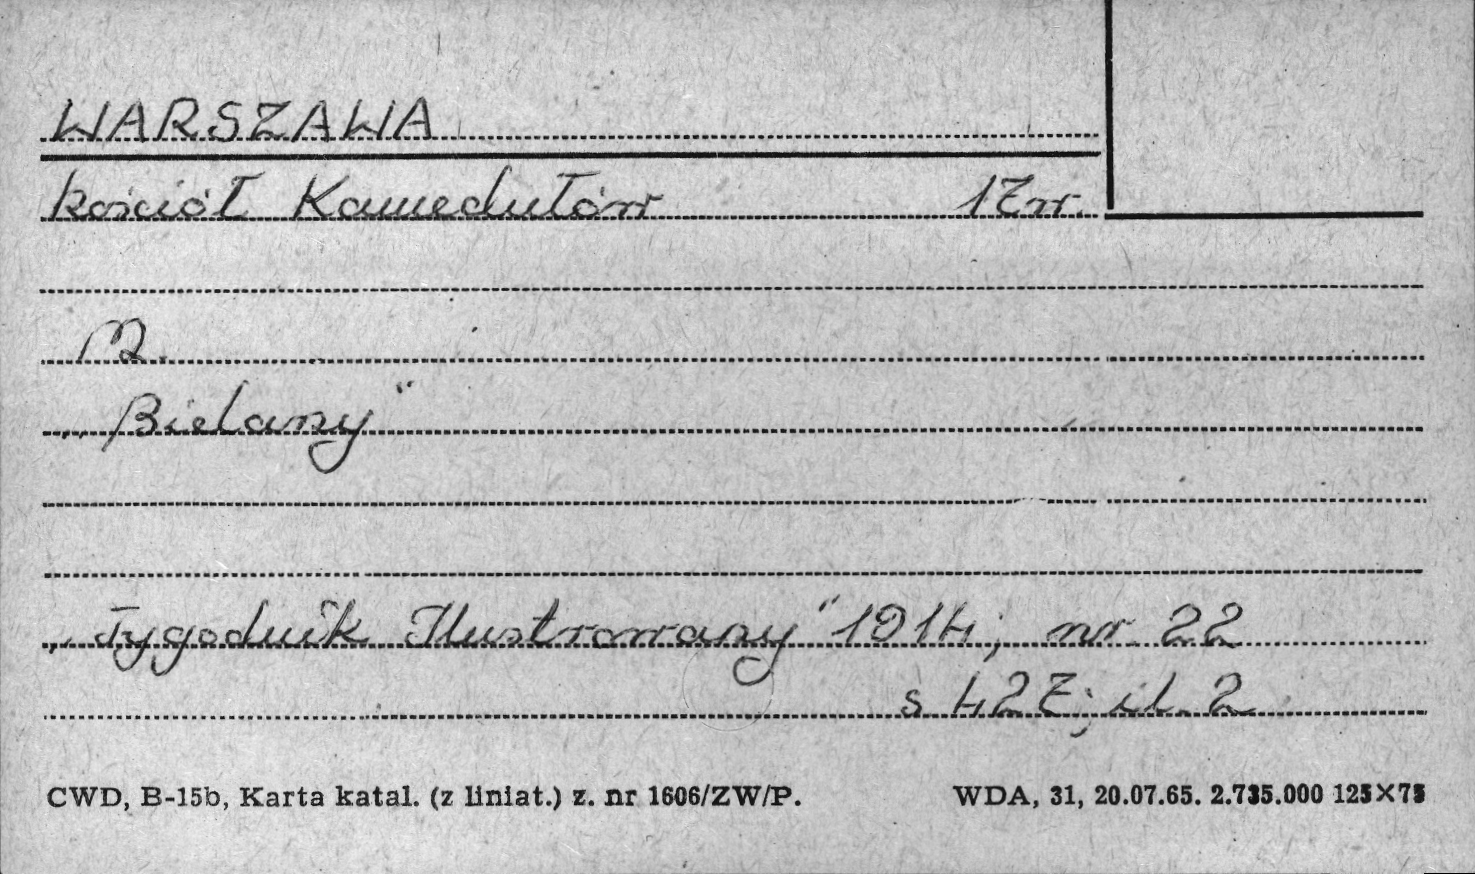 WARSZAWA
kościół Kamedułów 17 w.
M.
„Bielany"
„Tygodnik Ilustrowany" 1914, nr 22
s 427; il. 2
CWD, B-15b, Karta katal. (z liniat.) z. nr 1606/ZW/P. WDA, 31, 20.07.65. 2.735.000 125×75